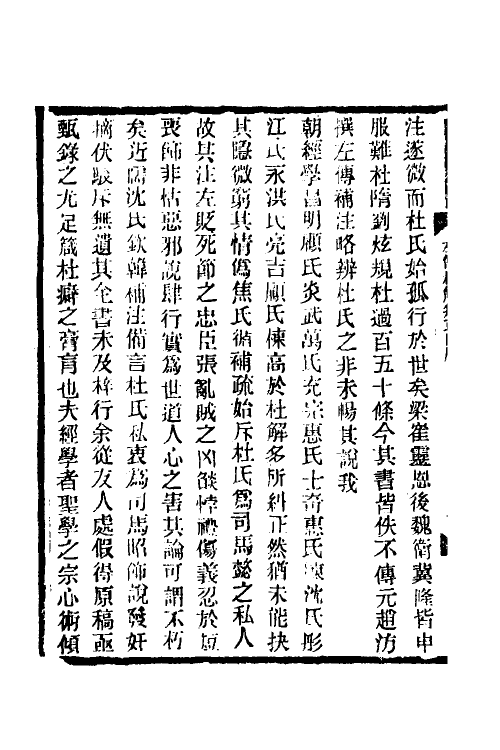 注遂微而杜氏始孤行於世矣梁崔靈恩後魏衛冀隆皆申
服難杜隋劉炫規杜過百五十條今其書皆佚不傳元趙汸
撰左傳補注略辨杜氏之非未暢其說我
朝經學昌明顧氏炎武萬氏充宗惠氏士奇惠氏棟沈氏彤
江氏永洪氏亮吉顧氏棟高於杜解多所糾正然猶未能抉
其隱微窮其情偽焦氏循補疏始斥杜氏為司馬懿之私人
故其注左貶死節之忠臣張亂賊之凶燄悖禮傷義忍於短
喪飾非怙惡邪說肆行實為世道人心之害其論可謂不朽
矣近儒沈氏欽韓補注備言杜氏私衷為司馬昭飾說發奸
擿伏駮斥無遺其全書未及梓行余從友人處假得原稿亟
甄錄之尤足箴杜癖之膏肓也夫經學者聖學之宗心術傾